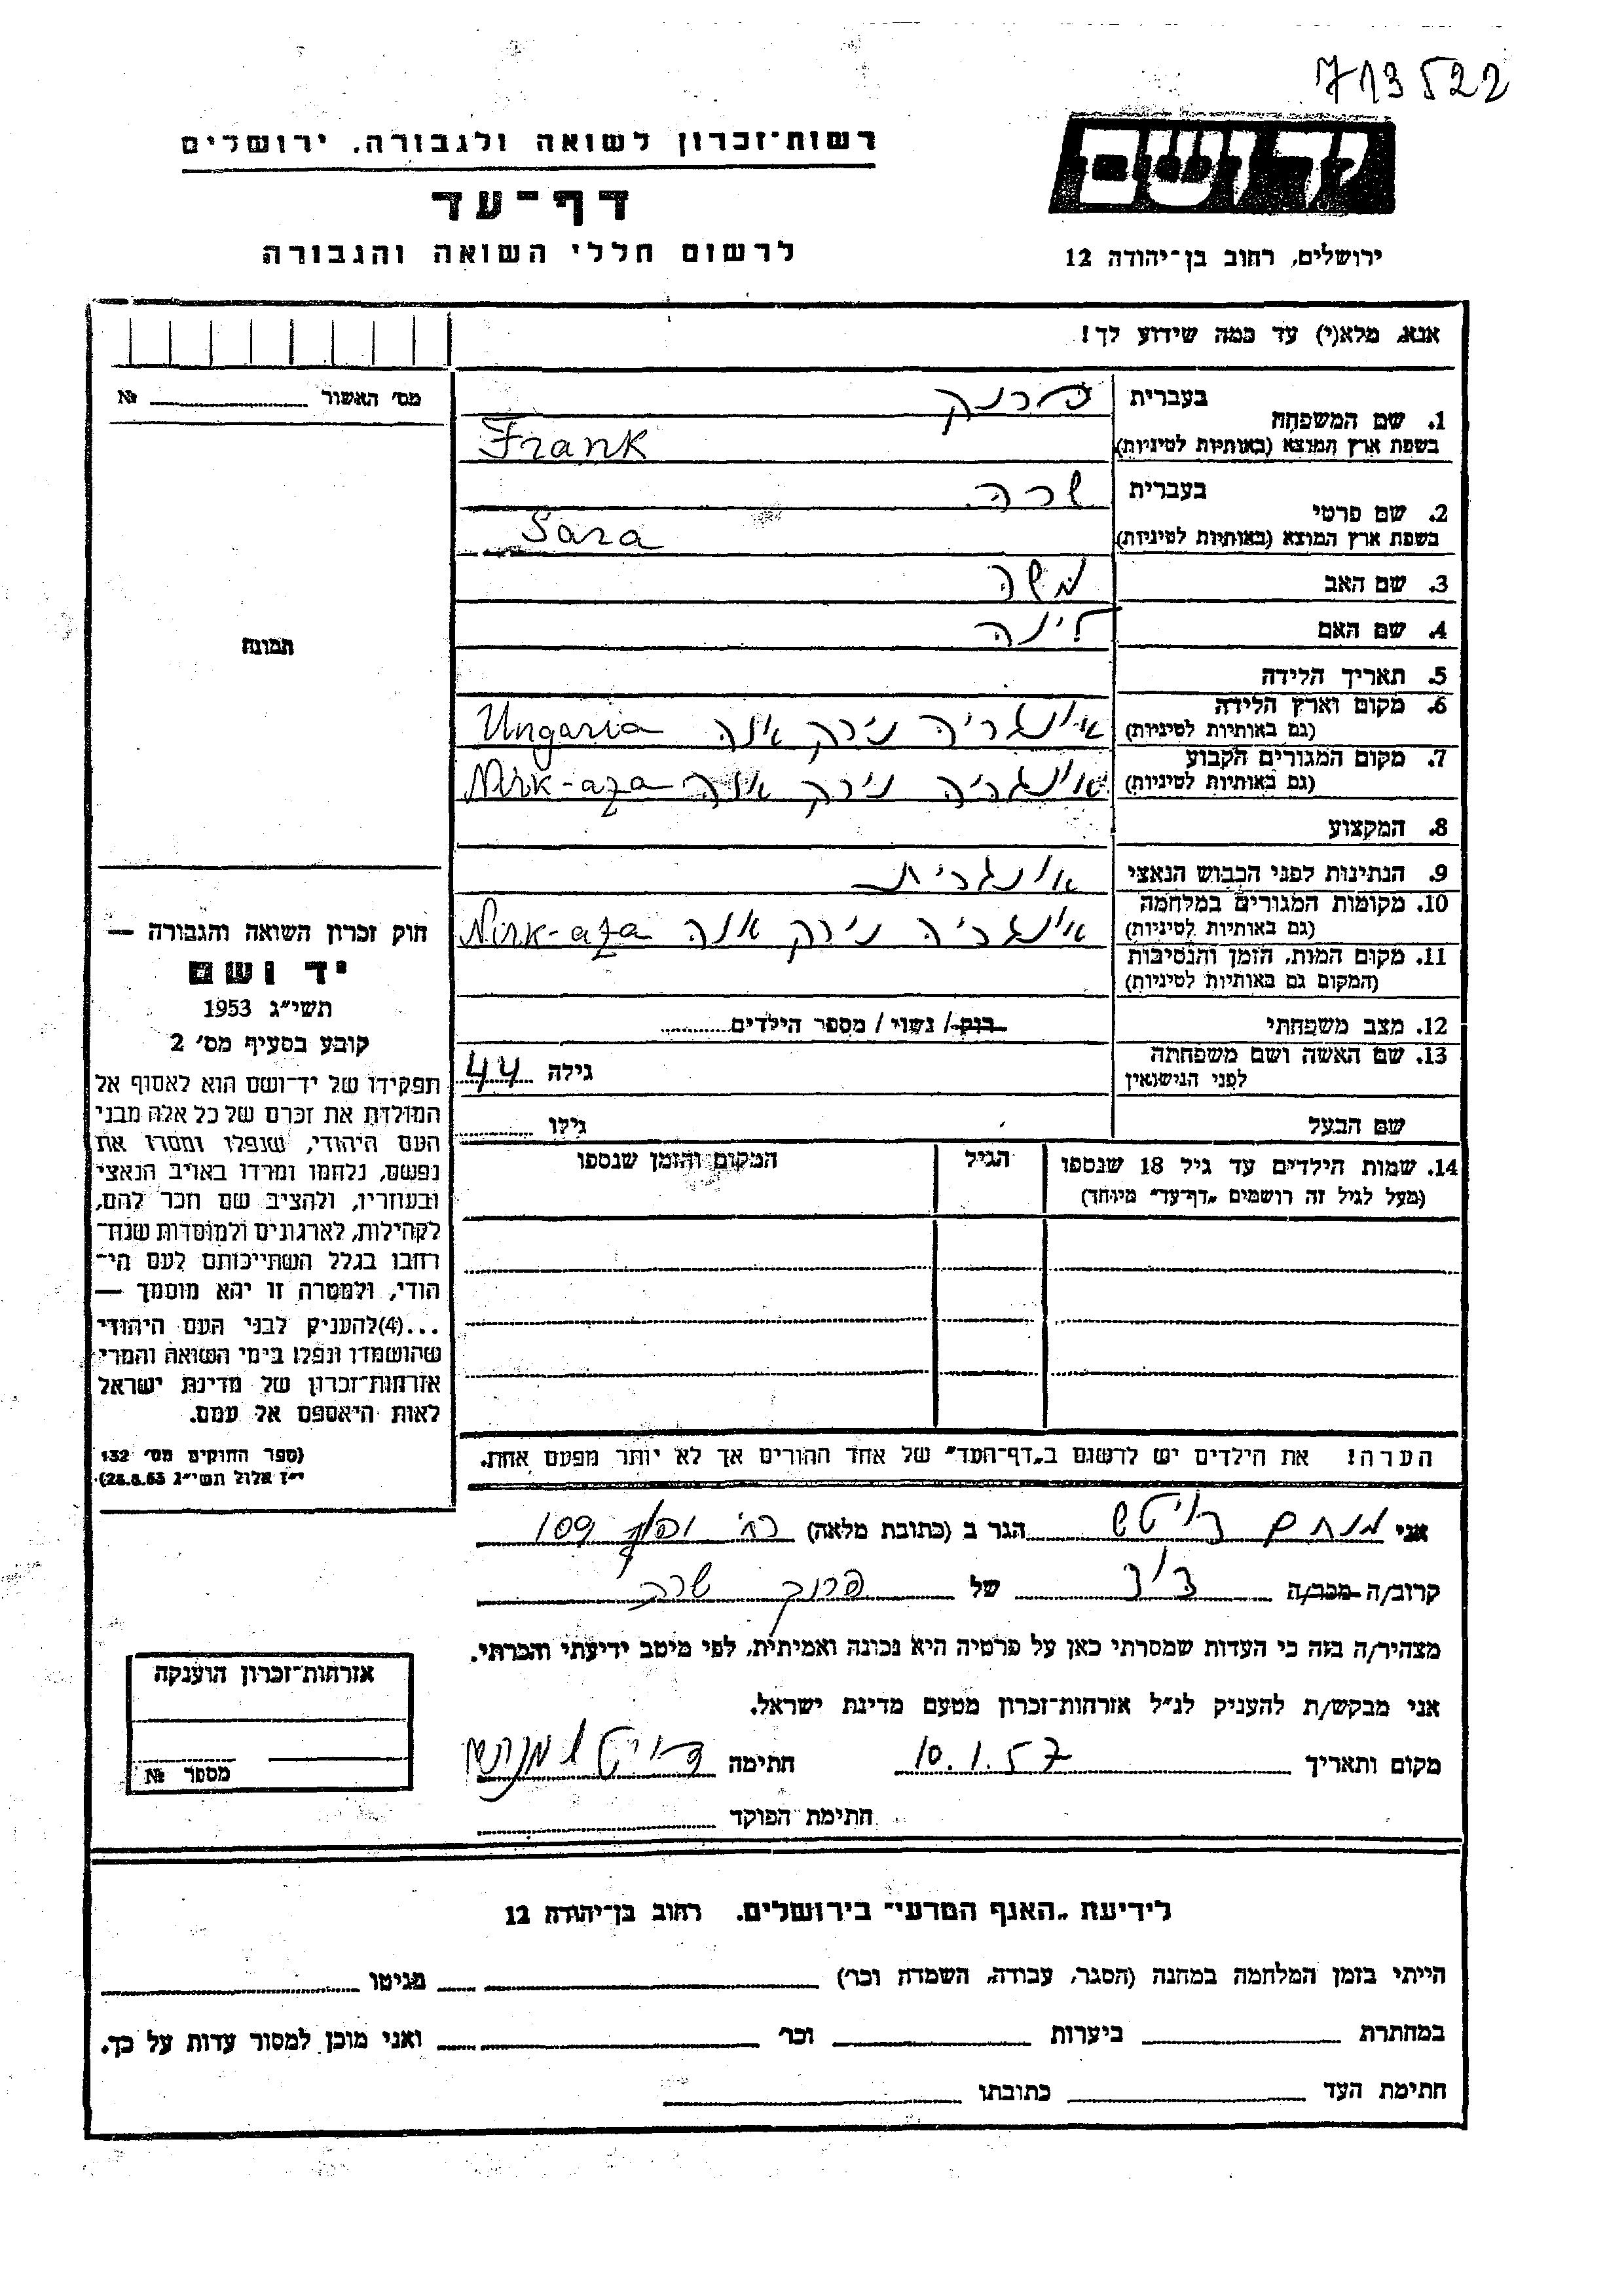 713522
יד ושם
ירושלים, רחוב בן־יהודה 12
רשות־זכרון לשואה ולגבורה, ירושלים
דף־עד
לרשום חללי השואה והגבורה
אנא, מלא(י) עד כמה שידוע לך!
מס' האשור № 
תמונה
1. שם המשפחה בעברית פרנק
בשפת ארץ המוצא (באותיות לטיניות) Frank
2. שם פרטי בעברית שרה
בשפת ארץ המוצא (באותיות לטיניות) Sara
3. שם האב משה
4. שם האם לינה
5. תאריך הלידה
6. מקום וארץ הלידה
(גם באותיות לטיניות) אונגריה נירק אזה Ungaria
7. מקום המגורים הקבוע
(גם באותיות לטיניות) אונגריה נירק אזה Nirk-aza
8. המקצוע
9. הנתינות לפני הכבוש הנאצי אונגרית
10. מקומות המגורים במלחמה
(גם באותיות לטיניות) אונגריה נירק אזה Nirk-aza
11. מקום המות, הזמן והנסיבות
(המקום גם באותיות לטיניות)
12. מצב משפחתי רווק / נשוי / מספר הילדים
13. שם האשה ושם משפחתה
לפני הנישואין גילה 44
שם הבעל גילו
14. שמות הילדים עד גיל 18 שנספו הגיל המקום והזמן שנספו
(מעל לגיל זה רושמים „דף־עד" מיוחד)
הערה! את הילדים יש לרשום ב„דף־העד" של אחד ההורים אך לא יותר מפעם אחת.
חוק זכרון השואה והגבורה —
יד ושם
תשי"ג 1953
קובע בסעיף מס' 2
תפקידו של יד־ושם הוא לאסוף אל
המולדת את זכרם של כל אלה מבני
העם היהודי, שנפלו ומסרו את
נפשם, נלחמו ומרדו באויב הנאצי
ובעוזריו, ולהציב שם וזכר להם,
לקהילות, לארגונים ולמוסדות שנח־
רבו בגלל השתייכותם לעם הי־
הודי, ולמטרה זו יהא מוסמך —
...(4)להעניק לבני העם היהודי
שהושמדו ונפלו בימי השואה והמרי
אזרחות־זכרון של מדינת ישראל
לאות היאספם אל עמם.
(ספר החוקים מס' 132
י"ז אלול תשי"ג 28.8.53)
אני מנחם דויטש הגר ב (כתובת מלאה) רח' 109
קרוב/ה מכר/ה דוד של פרנק שרה
מצהיר/ה בזה כי העדות שמסרתי כאן על פרטיה היא נכונה ואמיתית, לפי מיטב ידיעתי והכרתי.
אני מבקש/ת להעניק לנ"ל אזרחות־זכרון מטעם מדינת ישראל.
מקום ותאריך 10.1.57 חתימה דויטש מנחם
חתימת הפוקד
אזרחות־זכרון הוענקה
מספר №
לידיעת „האגף המדעי" בירושלים. רחוב בן־יהודה 12
הייתי בזמן המלחמה במחנה (הסגר, עבודה, השמדה וכר') מגיטו
במחתרת ביערות וכר' ואני מוכן למסור עדות על כך.
חתימת העד כתובתו